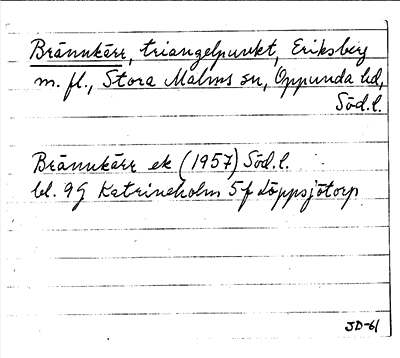 Brännkärr, triangelpunkt, Eriksberg
m. fl., Stora Malms sn, Oppunda hd,
Söd.l.
Brännkärr ek (1957) Söd.l.
bl. 9G Katrineholm 5f Löppsjötorp
JD-61